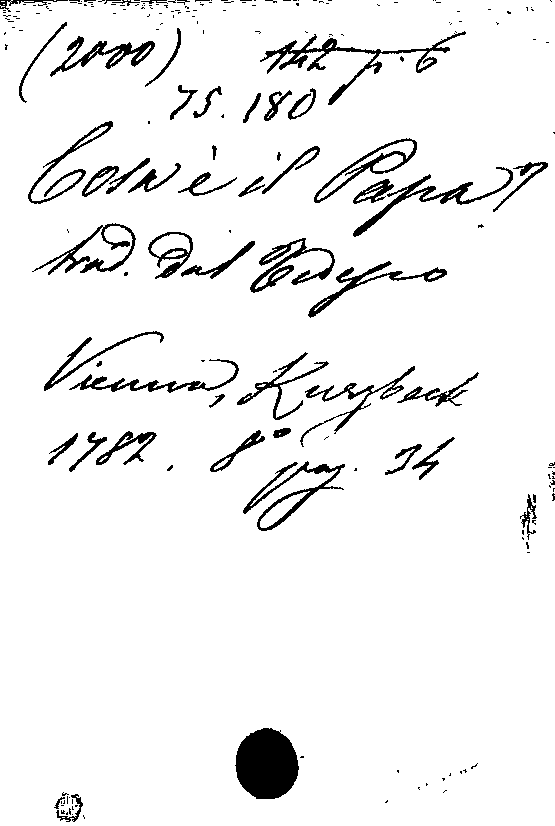 (2000) 142 p. 6
75. 180
Cosa è il Papa?
trad. dal Tedesco
Vienna, Kurzbeck
1782. 8° pag. 34